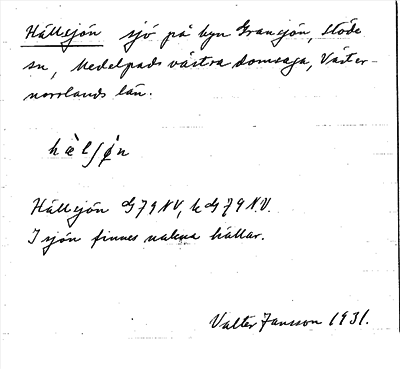 Hällsjön sjö på byn Gransjön, Stöde
sn, Medelpads västra domsaga, Väster-
norrlands län.
hæ̀lʃø̀n
Hällsjön G79NV, k G79NV.
I sjön finnes nakna hällar.
Valter Jansson 1931.